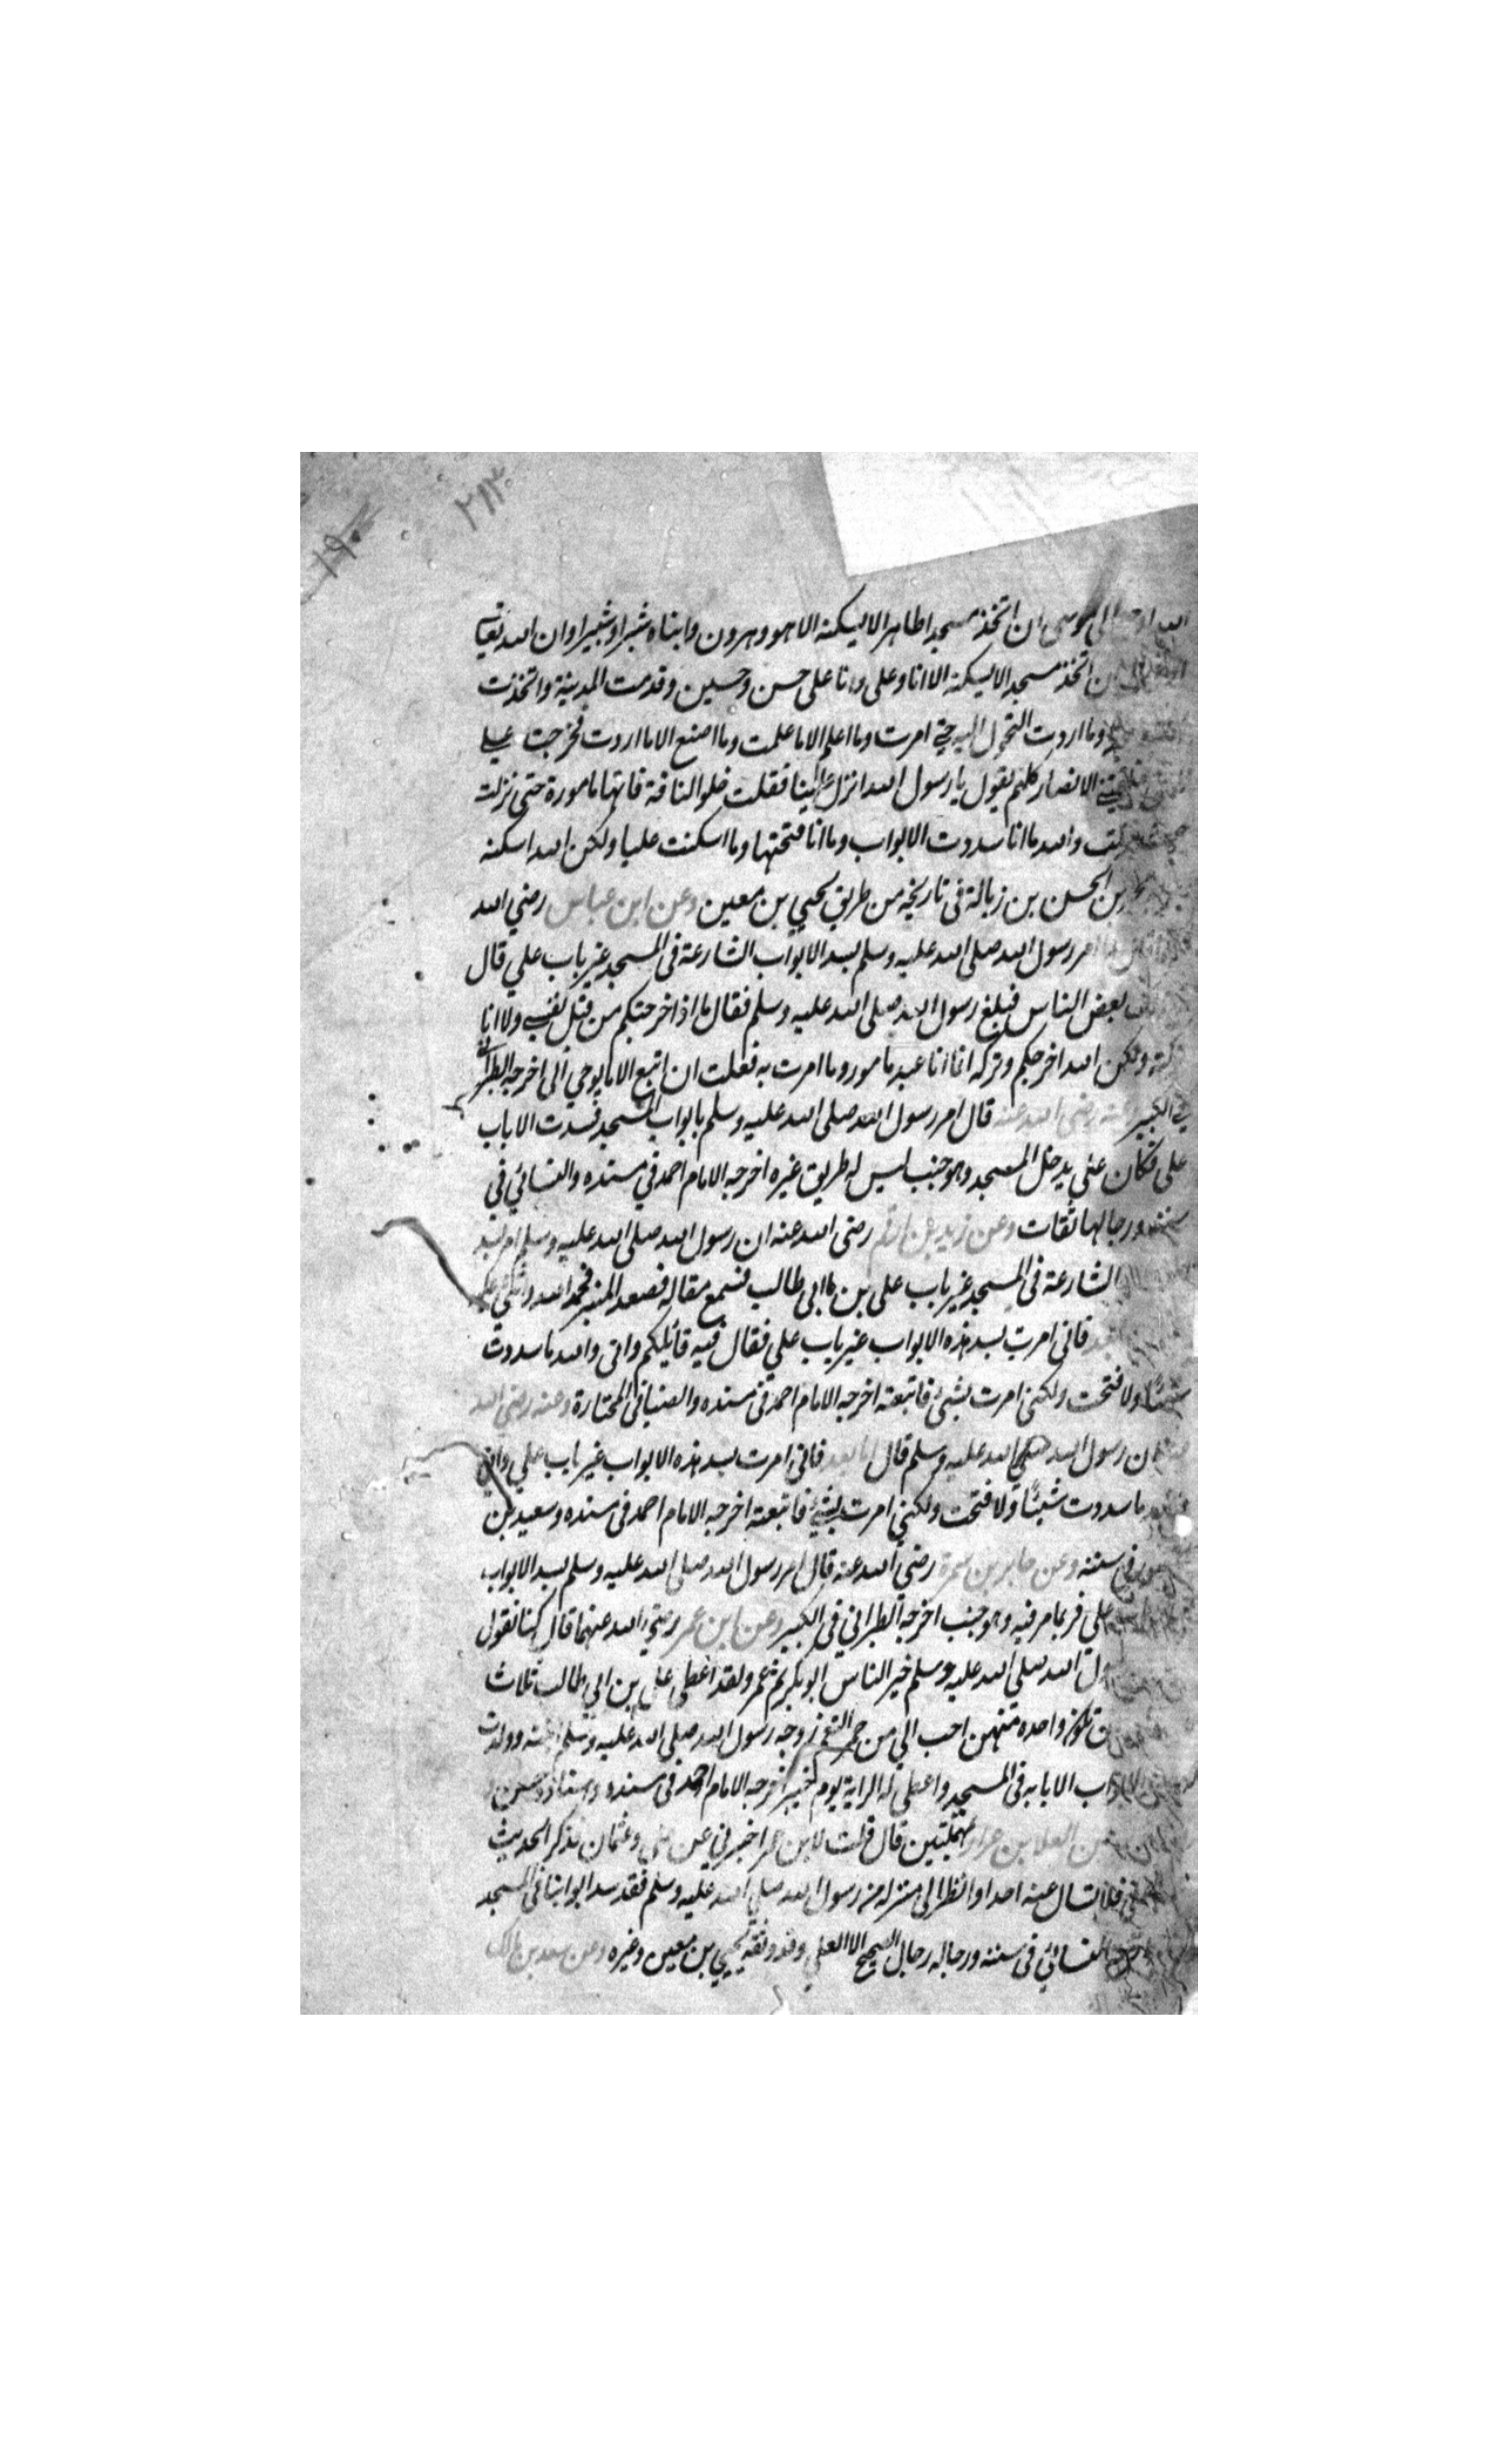 ٢١٣
١٩٠
الله اوحى الى موسى ان اتخذ مسجدا طاهرا لا يسكنه الا هو وهرون وابناه شبرا وشبيرا وان الله تعالى
ان اتخذ مسجدا لا يسكنه الا انا وعلى وانا على حسن وحسين وقدمت المدينة واتخذت
وما اردت التحول اليه حتى امرت وما اعلم الا ما علمت وما اصنع الا ما اردت فخرجت على
الانصار كلهم يقول يا رسول الله انزل علينا فقلت خلوا الناقة فانها مامورة حتى نزلت
والله ما انا سددت الابواب وما انا فتحتها وما اسكنت عليا ولكن الله اسكنه
بن الحسن بن زبالة فى تاريخه من طريق يحيى بن معين وعن ابن عباس رضي الله
امر رسول الله صلى الله عليه وسلم بسد الابواب الشارعة فى المسجد غير باب علي قال
بعض الناس فبلغ رسول الله صلى الله عليه وسلم فقال ما اذا اخرجتكم من قبل نفسي ولا انا
ولكن الله اخرجكم وتركه انما انا عبد مامور وما امرت به فعلت ان اتبع الا ما يوحي الى اخرجه الطبرانى
في الكبير عنه رضى الله عنه قال امر رسول الله صلى الله عليه وسلم بابواب المسجد فسدت الا باب
على فكان على يدخل المسجد وهو جنب ليس له طريق غيره اخرجه الامام احمد في مسنده والنسائي في
ورجالها ثقات وعن زيد بن ارقم رضى الله عنه ان رسول الله صلى الله عليه وسلم امر بسد
الشارعة فى المسجد غير باب على بن ابى طالب فسمع مقاله فصعد المنبر فحمد الله واثنى عليه
فانى امرت بسد هذه الابواب غير باب علي فقال فيه قائيلكم وانى والله ما سددت
شيئا ولا فتحت ولكنى امرت بشئ فاتبعته اخرجه الامام احمد فى مسنده والضيا فى المختارة وعنه رضى الله
ان رسول الله صلى الله عليه وسلم قال اما بعد فانى امرت بسد هذه الابواب غير باب علي وانى
ما سددت شيئا ولا فتحت ولكني امرت بشئ فاتبعته اخرجه الامام احمد فى مسنده وسعيد بن
فى سننه وعن جابر بن سمرة رضي الله عنه قال امر رسول الله صلى الله عليه وسلم بسد الابواب
على فربما مر فيه وهو جنب اخرجه الطبراني في الكبير وعن ابن عمر رضي الله عنهما قال كنا نقول
الله صلى الله عليه وسلم خير الناس ابو بكر ثم عمر ولقد اعطى على بن ابي طالب ثلاث
تكون واحده منهن احب الي من حمر النعم زوجه رسول الله صلى الله عليه وسلم ابنته وولدت
الابواب الا بابه فى المسجد واعطى له الراية يوم خيبر اخرجه الامام احمد فى مسنده واسناده حسن
العلا بن عرار مهملتين قال قلت لابن عمر اخبرني عن على وعثمان فذكر الحديث
فلا تسال عنه احدا وانظر الى منزله من رسول الله صلى الله عليه وسلم فقد سد ابوابنا فى المسجد
النسائي فى سننه ورجاله رجال الصحيح الا العلى وقد وثقه يحيى بن معين وغيره وعن سعد بن مالك